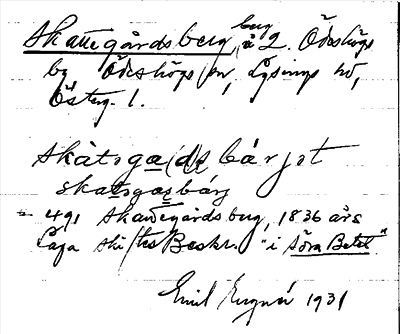 Skattegårdsberg, berg å 2. Ödeshögs
by Ödeshögs sn, Lysings hd,
Österg. l.
skàtsga(r)ds bárjət
skatsgasbárj
491 Skattegårdsberg, 1836 års
Laga Skiftes Beskr. "i Södra Betet"
Emil 1931